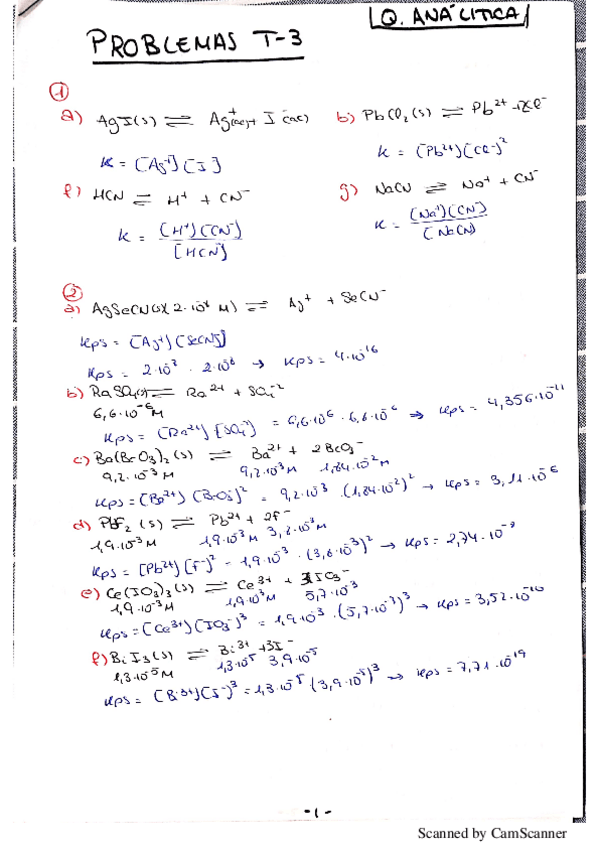 Q. ANÁLITICA
PROBLEMAS T-3
1
a) AgI(s) ⇌ Ag⁺(ac) + I⁻(ac) b) PbCl₂(s) ⇌ Pb²⁺ + 2Cl⁻
K = [Ag⁺][I⁻] K = [Pb²⁺][Cl⁻]²
f) HCN ⇌ H⁺ + CN⁻ g) NaCN ⇌ Na⁺ + CN⁻
K = [H⁺][CN⁻] / [HCN] K = [Na⁺][CN⁻] / [NaCN]
2
a) AgSeCN ( 2·10⁻⁸ M) ⇌ Ag⁺ + SeCN⁻
Kps = [Ag⁺][SeCN⁻]
Kps = 2·10 · 2·10 → Kps = 4·10⁻¹⁶
b) RaSO₄(s) ⇌ Ra²⁺ + SO₄⁻²
6,6·10⁻⁶ M
Kps = [Ra²⁺][SO₄⁻²] = 6,6·10⁻⁶ · 6,6·10⁻⁶ ⇒ Kps = 4,356·10⁻¹¹
c) Ba(BrO₃)₂(s) ⇌ Ba²⁺ + 2BrO₃⁻
9,2·10⁻³ M 9,2·10⁻³ M 1,84·10⁻² M
Kps = [Ba²⁺][BrO₃⁻]² = 9,2·10⁻³ · (1,84·10⁻²)² → Kps = 3,11·10⁻⁶
d) PbF₂ (s) ⇌ Pb²⁺ + 2F⁻
1,9·10⁻³ M 1,9·10⁻³ M 3,8·10⁻³ M
Kps = [Pb²⁺][F⁻]² = 1,9·10⁻³ · (3,8·10⁻³)² → Kps = 2,74·10⁻⁸
e) Ce(IO₃)₃(s) ⇌ Ce³⁺ + 3IO₃⁻
1,9·10⁻³ M 1,9·10⁻³ M 5,7·10⁻³
Kps = [Ce³⁺][IO₃⁻]³ = 1,9·10⁻³ · (5,7·10⁻³)³ → Kps = 3,52·10⁻¹⁰
f) BiI₃(s) ⇌ Bi³⁺ + 3I⁻
1,3·10⁻⁵ M 1,3·10⁻⁵ 3,9·10⁻⁵
Kps = [Bi³⁺][I⁻]³ = 1,3·10⁻⁵ · (3,9·10⁻⁵)³ → Kps = 7,71·10⁻¹⁹
-1-
Scanned by CamScanner